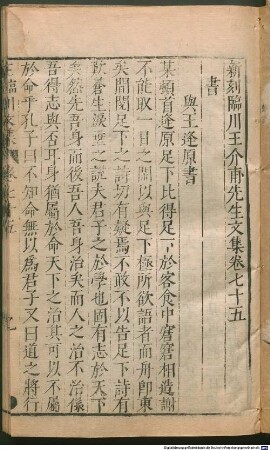 新刻臨川王介甫先生文集卷七十五
書
與王逢原書
某頓首逢原足下比得足下於客食中窘窘相造謝
不能取一日之閒以與足下極所欲語者而舟即東
矣間閱足下之詩切有疑焉不敢不以告足下詩有
歎蒼生淚垂之說夫君子之於學也固有志於天下
矣然先吾身而後吾人吾身治矣而人之治不治係
吾得志與否耳身猶屬於命天下之治其可以不屬
於命乎孔子曰不知命無以爲君子又曰道之將行